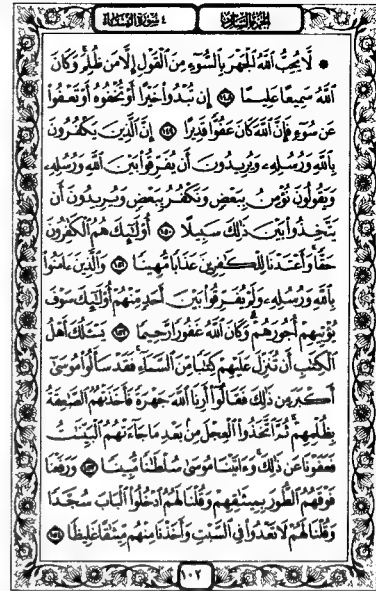 الجزء السادس
٤ سورة النساء
۞ لَّا يُحِبُّ ٱللَّهُ ٱلْجَهْرَ بِٱلسُّوٓءِ مِنَ ٱلْقَوْلِ إِلَّا مَن ظُلِمَ وَكَانَ
ٱللَّهُ سَمِيعًا عَلِيمًا ١٤٨ إِن تُبْدُوا۟ خَيْرًا أَوْ تُخْفُوهُ أَوْ تَعْفُوا۟
عَن سُوٓءٍ فَإِنَّ ٱللَّهَ كَانَ عَفُوًّا قَدِيرًا ١٤٩ إِنَّ ٱلَّذِينَ يَكْفُرُونَ
بِٱللَّهِ وَرُسُلِهِۦ وَيُرِيدُونَ أَن يُفَرِّقُوا۟ بَيْنَ ٱللَّهِ وَرُسُلِهِۦ
وَيَقُولُونَ نُؤْمِنُ بِبَعْضٍ وَنَكْفُرُ بِبَعْضٍ وَيُرِيدُونَ أَن
يَتَّخِذُوا۟ بَيْنَ ذَٰلِكَ سَبِيلًا ١٥٠ أُو۟لَٰٓئِكَ هُمُ ٱلْكَٰفِرُونَ
حَقًّا وَأَعْتَدْنَا لِلْكَٰفِرِينَ عَذَابًا مُّهِينًا ١٥١ وَٱلَّذِينَ ءَامَنُوا۟
بِٱللَّهِ وَرُسُلِهِۦ وَلَمْ يُفَرِّقُوا۟ بَيْنَ أَحَدٍ مِّنْهُمْ أُو۟لَٰٓئِكَ سَوْفَ
يُؤْتِيهِمْ أُجُورَهُمْ وَكَانَ ٱللَّهُ غَفُورًا رَّحِيمًا ١٥٢ يَسْـَٔلُكَ أَهْلُ
ٱلْكِتَٰبِ أَن تُنَزِّلَ عَلَيْهِمْ كِتَٰبًا مِّنَ ٱلسَّمَآءِ فَقَدْ سَأَلُوا۟ مُوسَىٰٓ
أَكْبَرَ مِن ذَٰلِكَ فَقَالُوٓا۟ أَرِنَا ٱللَّهَ جَهْرَةً فَأَخَذَتْهُمُ ٱلصَّٰعِقَةُ
بِظُلْمِهِمْ ثُمَّ ٱتَّخَذُوا۟ ٱلْعِجْلَ مِنۢ بَعْدِ مَا جَآءَتْهُمُ ٱلْبَيِّنَٰتُ
فَعَفَوْنَا عَن ذَٰلِكَ وَءَاتَيْنَا مُوسَىٰ سُلْطَٰنًا مُّبِينًا ١٥٣ وَرَفَعْنَا
فَوْقَهُمُ ٱلطُّورَ بِمِيثَٰقِهِمْ وَقُلْنَا لَهُمُ ٱدْخُلُوا۟ ٱلْبَابَ سُجَّدًا
وَقُلْنَا لَهُمْ لَا تَعْدُوا۟ فِى ٱلسَّبْتِ وَأَخَذْنَا مِنْهُم مِّيثَٰقًا غَلِيظًا ١٥٤
١٠٢